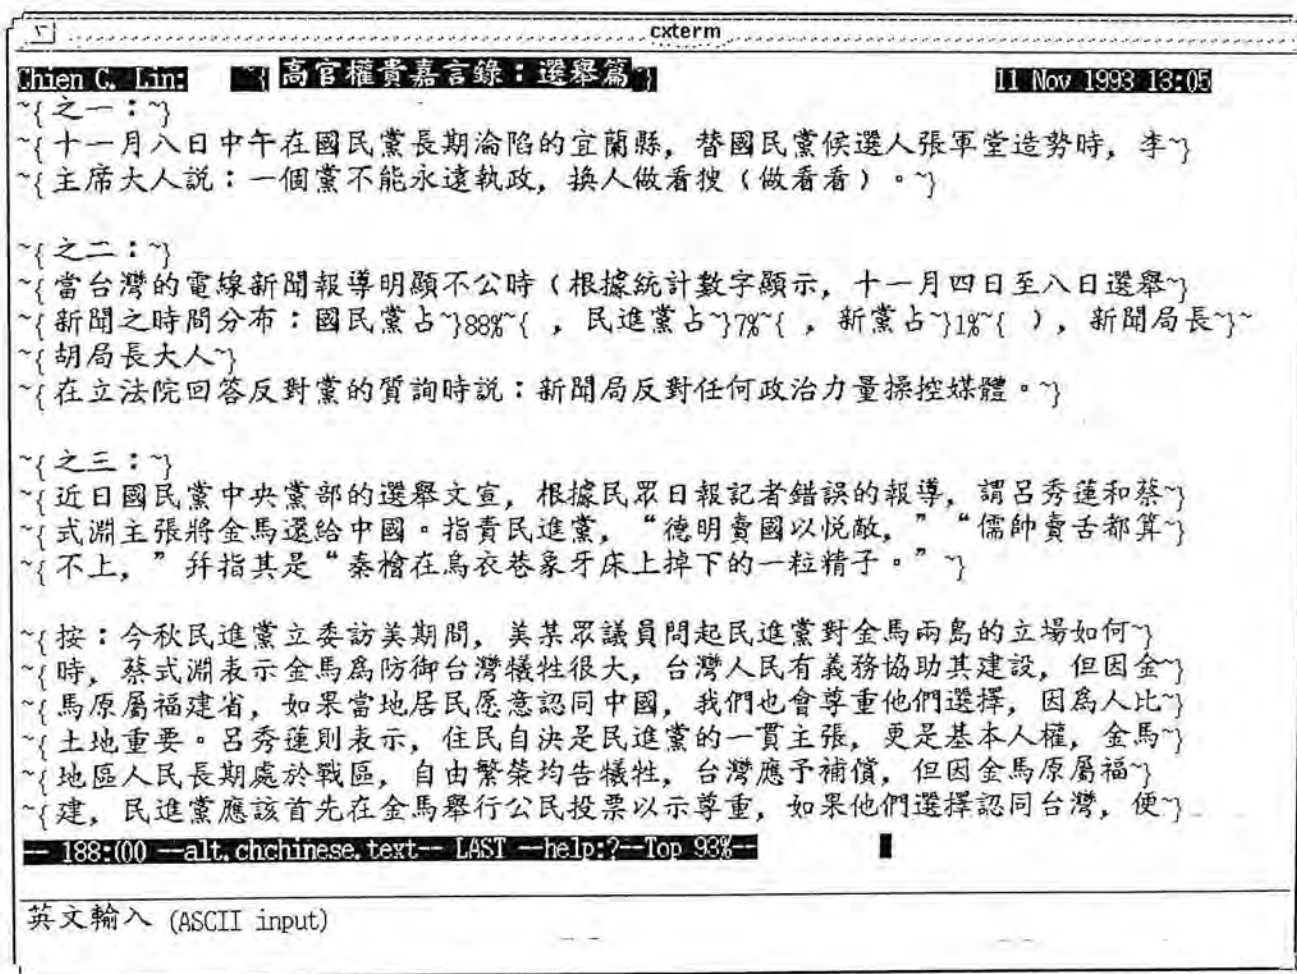 cxterm
Chien C. Lin: ~{ 高官權貴嘉言錄：選舉篇 ~} 11 Nov 1993 13:05
~{ 之一：~}
~{ 十一月八日中午在國民黨長期淪陷的宜蘭縣，替國民黨候選人張軍堂造勢時，李~}
~{ 主席大人説：一個黨不能永遠執政，換人做看搜（做看看）。~}
~{ 之二：~}
~{ 當台灣的電線新聞報導明顯不公時（根據統計數字顯示，十一月四日至八日選舉~}
~{ 新聞之時間分布：國民黨占~}88%~{ ，民進黨占~}7%~{ ，新黨占~}1%~{ ），新聞局長~}~
~{ 胡局長大人~}
~{ 在立法院回答反對黨的質詢時説：新聞局反對任何政治力量操控媒體。~}
~{ 之三：~}
~{ 近日國民黨中央黨部的選舉文宣，根據民眾日報記者錯誤的報導，謂呂秀蓮和蔡~}
~{ 式淵主張將金馬還給中國。指責民進黨，“德明賣國以悦敵，”“儒帥賣舌都算~}
~{ 不上，”幷指其是“秦檜在烏衣巷象牙床上掉下的一粒精子。” ~}
~{ 按：今秋民進黨立委訪美期間，美某眾議員問起民進黨對金馬兩島的立場如何~}
~{ 時，蔡式淵表示金馬爲防御台灣犧牲很大，台灣人民有義務協助其建設，但因金~}
~{ 馬原屬福建省，如果當地居民愿意認同中國，我們也會尊重他們選擇，因爲人比~}
~{ 土地重要。呂秀蓮則表示，住民自決是民進黨的一貫主張，更是基本人權，金馬~}
~{ 地區人民長期處於戰區，自由繁榮均告犧牲，台灣應予補償，但因金馬原屬福~}
~{ 建，民進黨應該首先在金馬舉行公民投票以示尊重，如果他們選擇認同台灣，便~}
-- 188:(00 --alt.chchinese.text-- LAST --help:?--Top 93%--
英文輸入 (ASCII input)